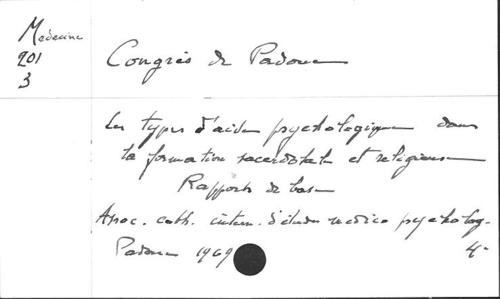 Medecine
201
3
Congrès de Padoue
Les types d'aide psychologique dans
la formation sacerdotale et religieuse
Rapports de base
Assoc. cath. intern. d'études medico psycholog.
Padoue 1969
4°